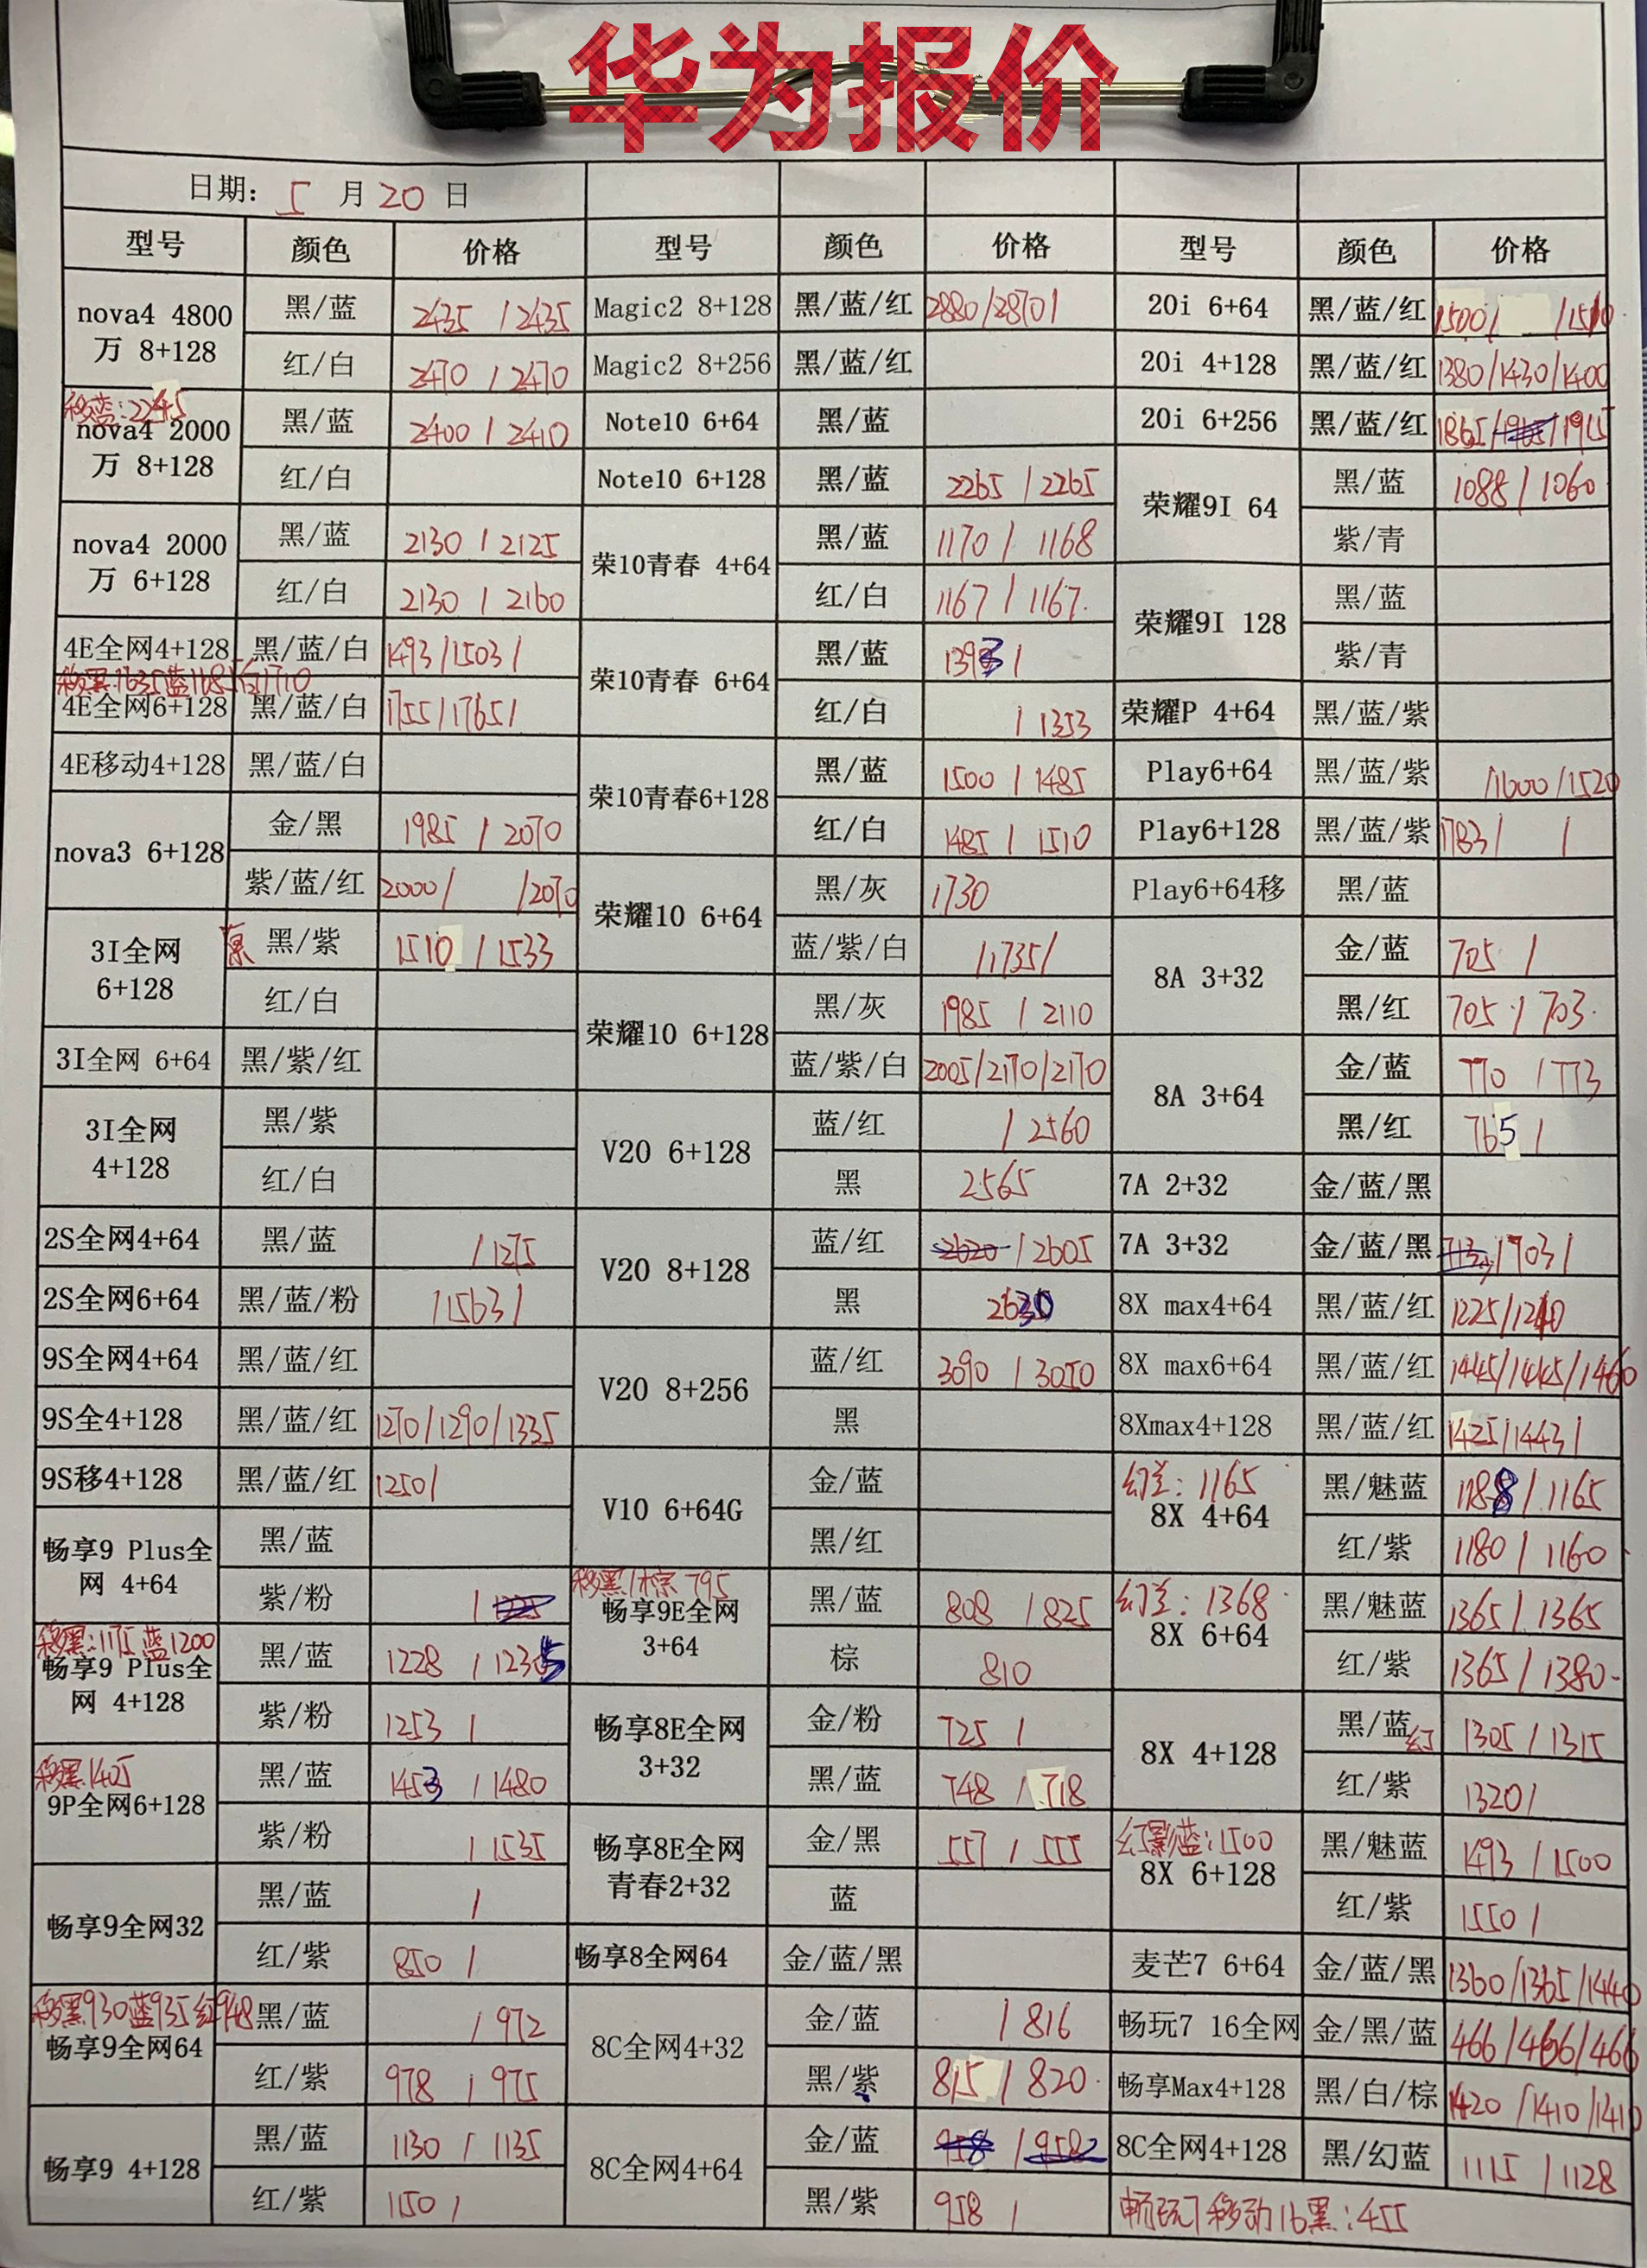 华为报价
日期: 5 月 20 日
型号 颜色 价格 型号 颜色 价格 型号 颜色 价格
nova4 4800万 8+128 黑/蓝 2435 / 2435
红/白 2470 / 2470
移蓝:2245
nova4 2000万 8+128 黑/蓝 2400 / 2410
红/白
nova4 2000万 6+128 黑/蓝 2130 / 2125
红/白 2130 / 2160
4E全网4+128 黑/蓝/白 1493/1503/
移黑:1635蓝1685白1710
4E全网6+128 黑/蓝/白 1755/1765/
4E移动4+128 黑/蓝/白
nova3 6+128 金/黑 1985 / 2070
紫/蓝/红 2000/ /2070
3I全网 6+128 黑/紫 1510 / 1533
红/白
3I全网 6+64 黑/紫/红
3I全网 4+128 黑/紫
红/白
2S全网4+64 黑/蓝 / 1275
2S全网6+64 黑/蓝/粉 /1563/
9S全网4+64 黑/蓝/红
9S全4+128 黑/蓝/红 1270/1290/1335
9S移4+128 黑/蓝/红 1250/
畅享9 Plus全网 4+64 黑/蓝
紫/粉 /
移黑:1175 蓝1200
畅享9 Plus全网 4+128 黑/蓝 1228 / 1235
紫/粉 1253 /
移黑1405
9P全网6+128 黑/蓝 1453 / 1480
紫/粉 / 1535
畅享9全网32 黑/蓝 /
红/紫 850 /
移黑930蓝935红948
畅享9全网64 黑/蓝 / 972
红/紫 978 / 975
畅享9 4+128 黑/蓝 1130 / 1135
红/紫 1150 /
Magic2 8+128 黑/蓝/红 2880/2870/
Magic2 8+256 黑/蓝/红
Note10 6+64 黑/蓝
Note10 6+128 黑/蓝 2265 / 2265
荣10青春 4+64 黑/蓝 1170 / 1168
红/白 1167 / 1167
荣10青春 6+64 黑/蓝 1393 /
红/白 / 1353
荣10青春6+128 黑/蓝 1500 / 1485
红/白 1485 / 1510
荣耀10 6+64 黑/灰 1730
蓝/紫/白 /1735/
荣耀10 6+128 黑/灰 1985 / 2110
蓝/紫/白 2005/2170/2170
V20 6+128 蓝/红 / 2560
黑 2565
V20 8+128 蓝/红 2620 / 2605
黑 2630
V20 8+256 蓝/红 3090 / 3050
黑
V10 6+64G 金/蓝
黑/红
移黑/棕 795
畅享9E全网 3+64 黑/蓝 808 / 825
棕 810
畅享8E全网 3+32 金/粉 725 /
黑/蓝 748 / 718
畅享8E全网青春2+32 金/黑 557 / 555
蓝
畅享8全网64 金/蓝/黑
8C全网4+32 金/蓝 / 816
黑/紫 815 / 820
8C全网4+64 金/蓝 958 / 9582
黑/紫 958 /
20i 6+64 黑/蓝/红 1500/ /1510
20i 4+128 黑/蓝/红 1380/1430/1400
20i 6+256 黑/蓝/红 1865/1965/1915
荣耀9I 64 黑/蓝 1088 / 1060
紫/青
荣耀9I 128 黑/蓝
紫/青
荣耀P 4+64 黑/蓝/紫
Play6+64 黑/蓝/紫 /1600/1520
Play6+128 黑/蓝/紫 1783/ /
Play6+64移 黑/蓝
8A 3+32 金/蓝 705 /
黑/红 705 / 703
8A 3+64 金/蓝 770 / 773
黑/红 765 /
7A 2+32 金/蓝/黑
7A 3+32 金/蓝/黑 713/703/
8X max4+64 黑/蓝/红 1225/1210
8X max6+64 黑/蓝/红 1445/1445/1460
8Xmax4+128 黑/蓝/红 1425/1443/
幻兰: 1165
8X 4+64 黑/魅蓝 1188 / 1165
红/紫 1180 / 1160
幻兰: 1368
8X 6+64 黑/魅蓝 1365 / 1365
红/紫 1365 / 1380
8X 4+128 黑/蓝 幻 1305 / 1315
红/紫 1320/
幻影蓝:1500
8X 6+128 黑/魅蓝 1493 / 1500
红/紫 1550 /
麦芒7 6+64 金/蓝/黑 1360/1365/1440
畅玩7 16全网 金/黑/蓝 466/466/466
畅享Max4+128 黑/白/棕 1420 /1410 /1410
8C全网4+128 黑/幻蓝 1115 / 1128
畅玩7移动16黑:455